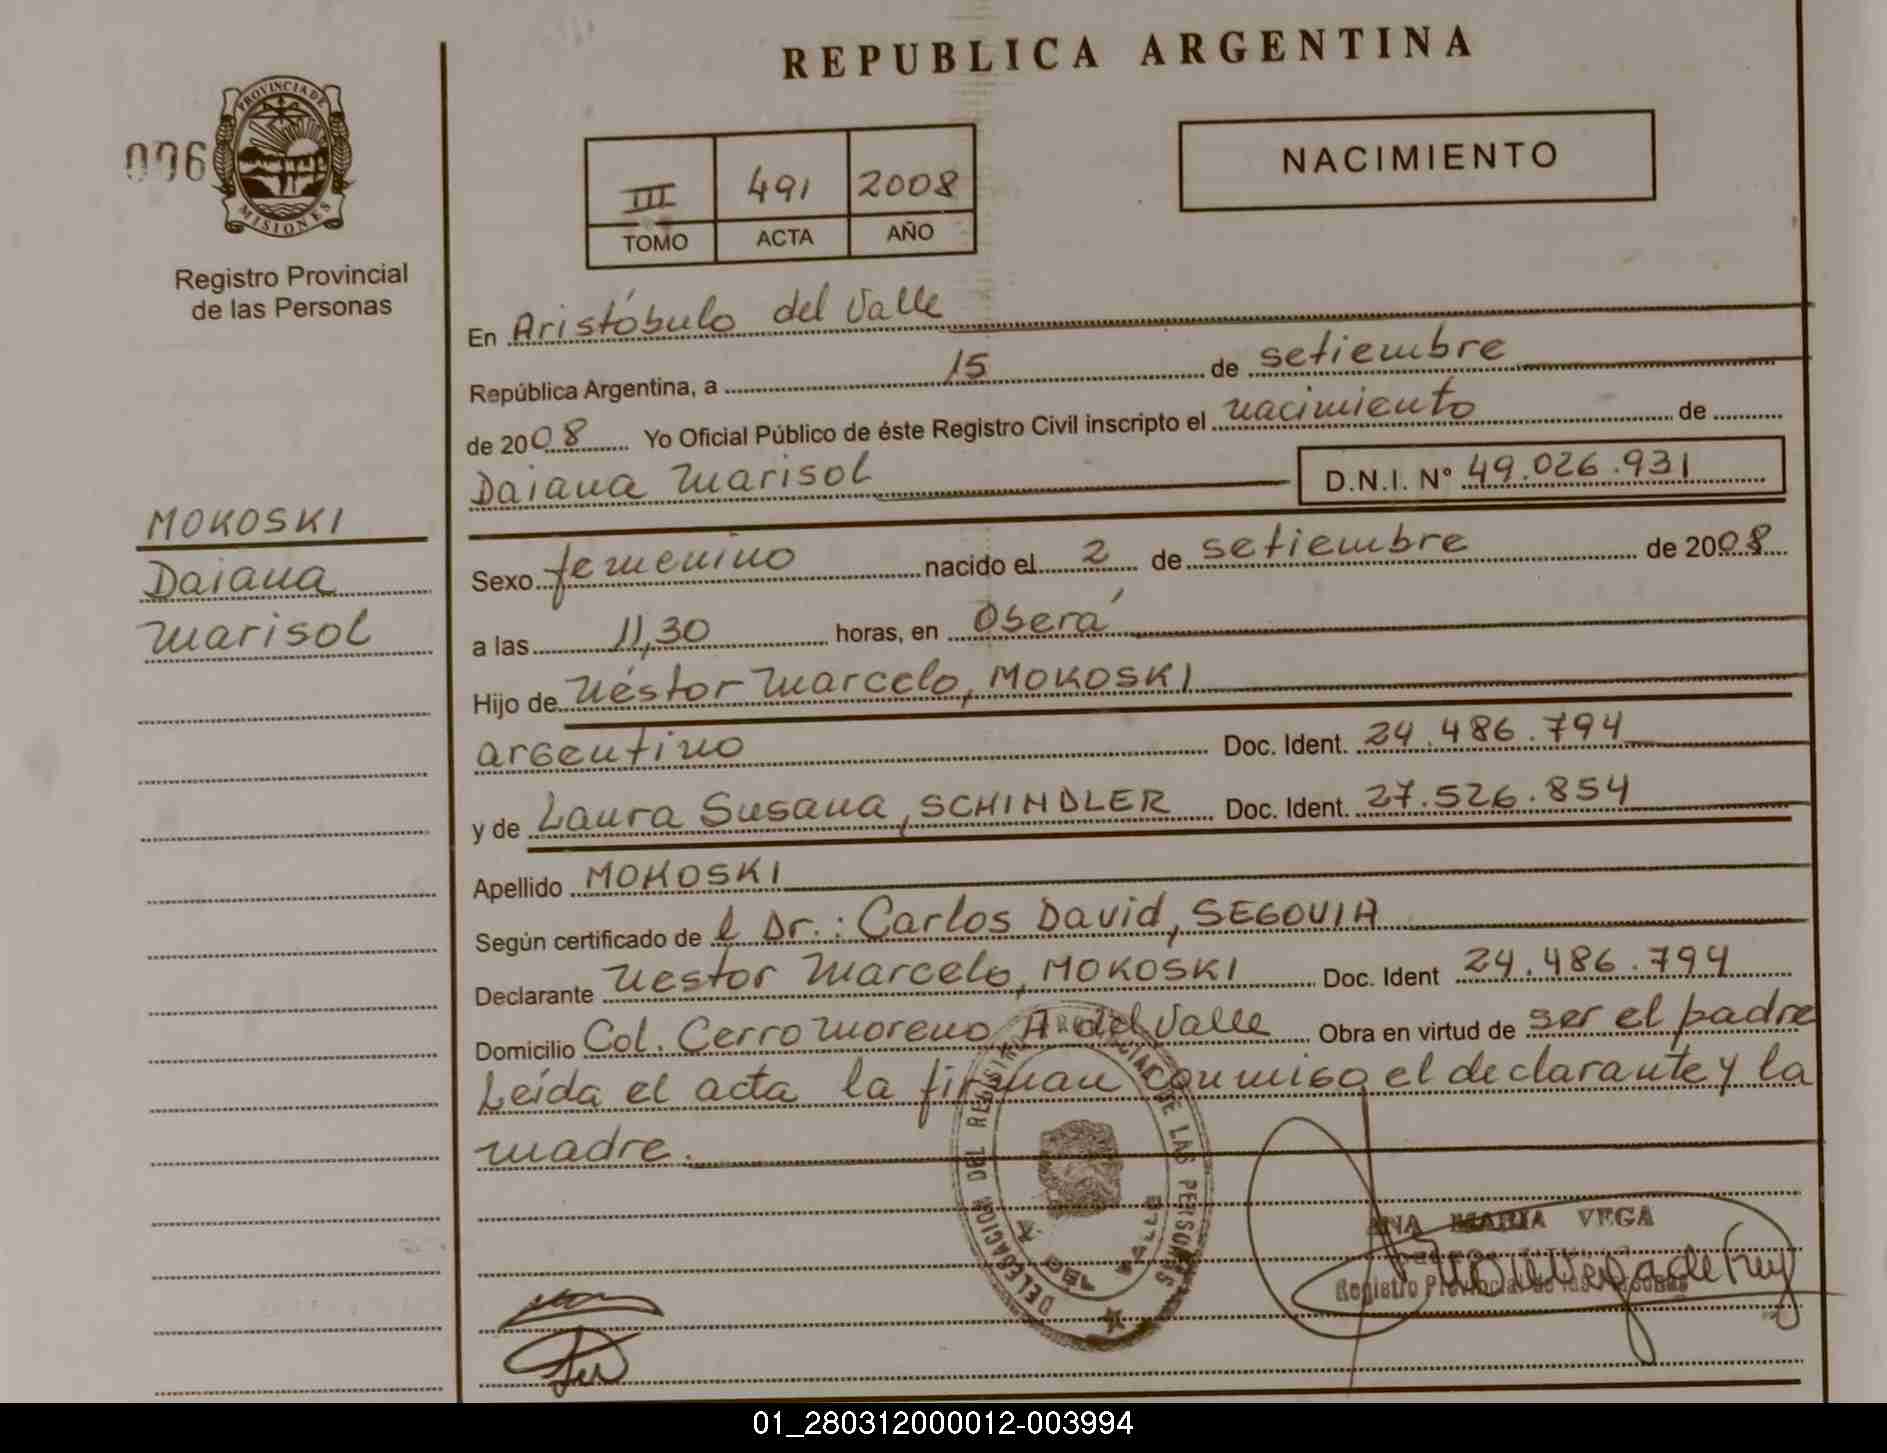 REPUBLICA ARGENTINA
PROVINCIA DE
MISIONES
006
Registro Provincial
de las Personas
III 491 2008
TOMO ACTA AÑO
NACIMIENTO
En Aristóbulo del Valle
República Argentina, a 15 de setiembre
de 2008 Yo Oficial Público de éste Registro Civil inscripto el nacimiento de
Daiana Marisol D.N.I. Nº 49.026.931
MOKOSKI
Daiana
Marisol
Sexo femenino nacido el 2 de setiembre de 2008
a las 11,30 horas, en Oberá
Hijo de Néstor Marcelo, MOKOSKI
argentino Doc. Ident. 24.486.794
y de Laura Susana, SCHINDLER Doc. Ident. 27.526.854
Apellido MOKOSKI
Según certificado de l Dr.: Carlos David, SEGOVIA
Declarante Nestor Marcelo, MOKOSKI Doc. Ident 24.486.794
Domicilio Col. Cerro Moreno A. del Valle Obra en virtud de ser el padre
Leída el acta la firman conmigo el declarante y la
madre.
DELEGACION DEL REGISTRO PROVINCIAL DE LAS PERSONAS
A. DEL VALLE
ANA MARIA VEGA
Registro Provincial de las Personas
01_280312000012-003994